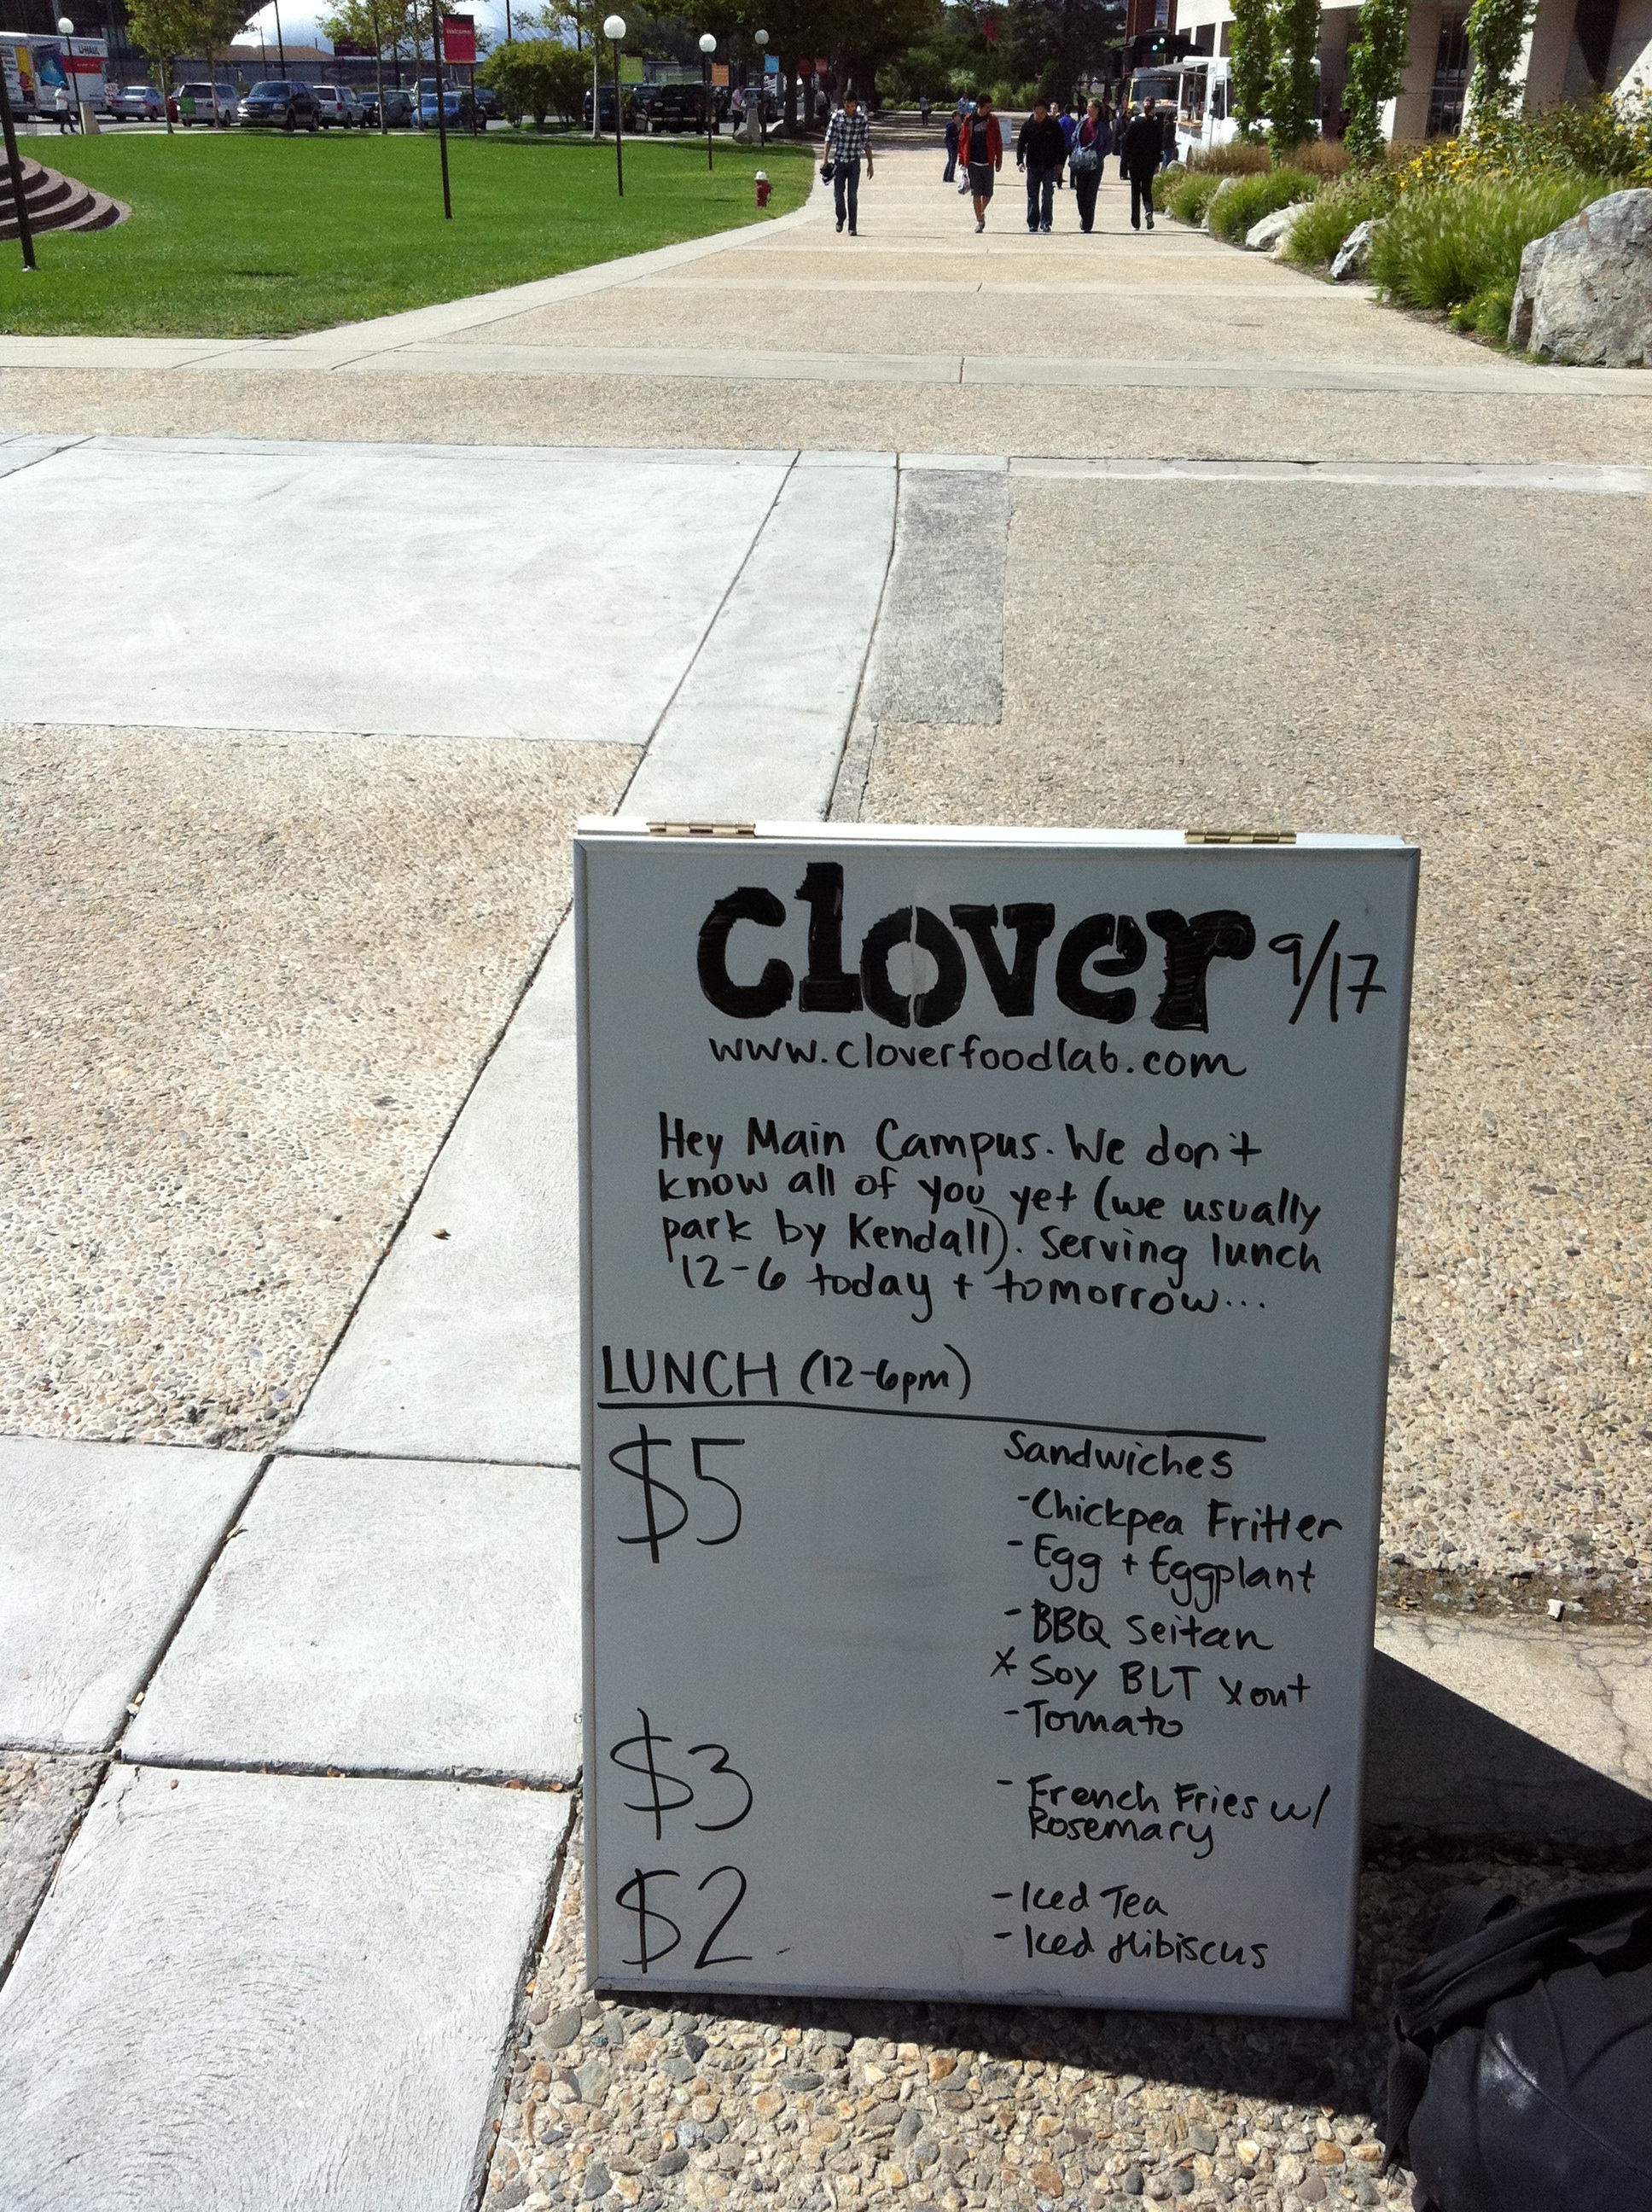 U-HAUL
clover 9/17
www.cloverfoodlab.com
Hey Main Campus. We don't
know all of you yet (we usually
park by Kendall). Serving lunch
12-6 today + tomorrow...
LUNCH (12-6pm)
$5 Sandwiches
-Chickpea Fritter
-Egg + Eggplant
-BBQ Seitan
x Soy BLT x out
-Tomato
$3 -French Fries w/
Rosemary
$2 -Iced Tea
-Iced Hibiscus